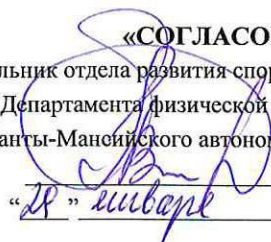 «СОГЛАСО
льник отдела развития спор
Департамента физической
анты-Мансийского автоном
“29” января